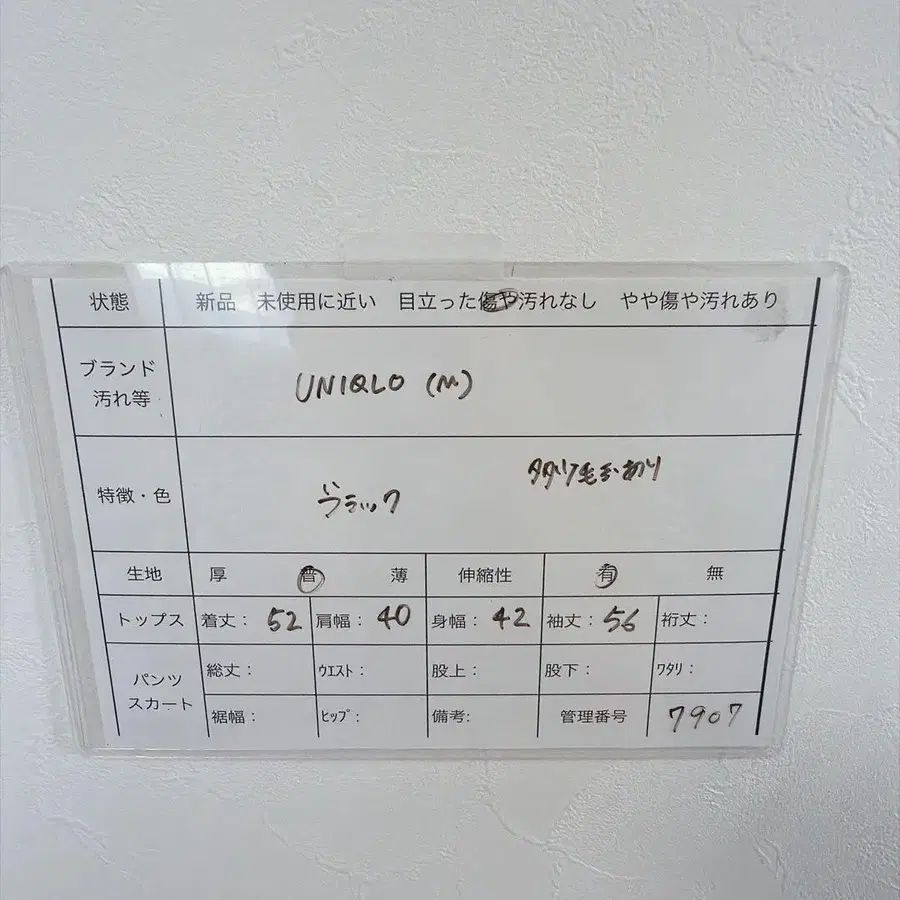 状態 新品 未使用に近い 目立った傷や汚れなし やや傷や汚れあり
ブランド
汚れ等
UNIQLO (M)
特徴・色
ブラック
毛玉あり
生地 厚 普 薄 伸縮性 有 無
トップス 着丈: 52 肩幅: 40 身幅: 42 袖丈: 56 裄丈:
パンツ
スカート
総丈: ウエスト: 股上: 股下: ワタリ:
裾幅: ヒップ: 備考: 管理番号 7907